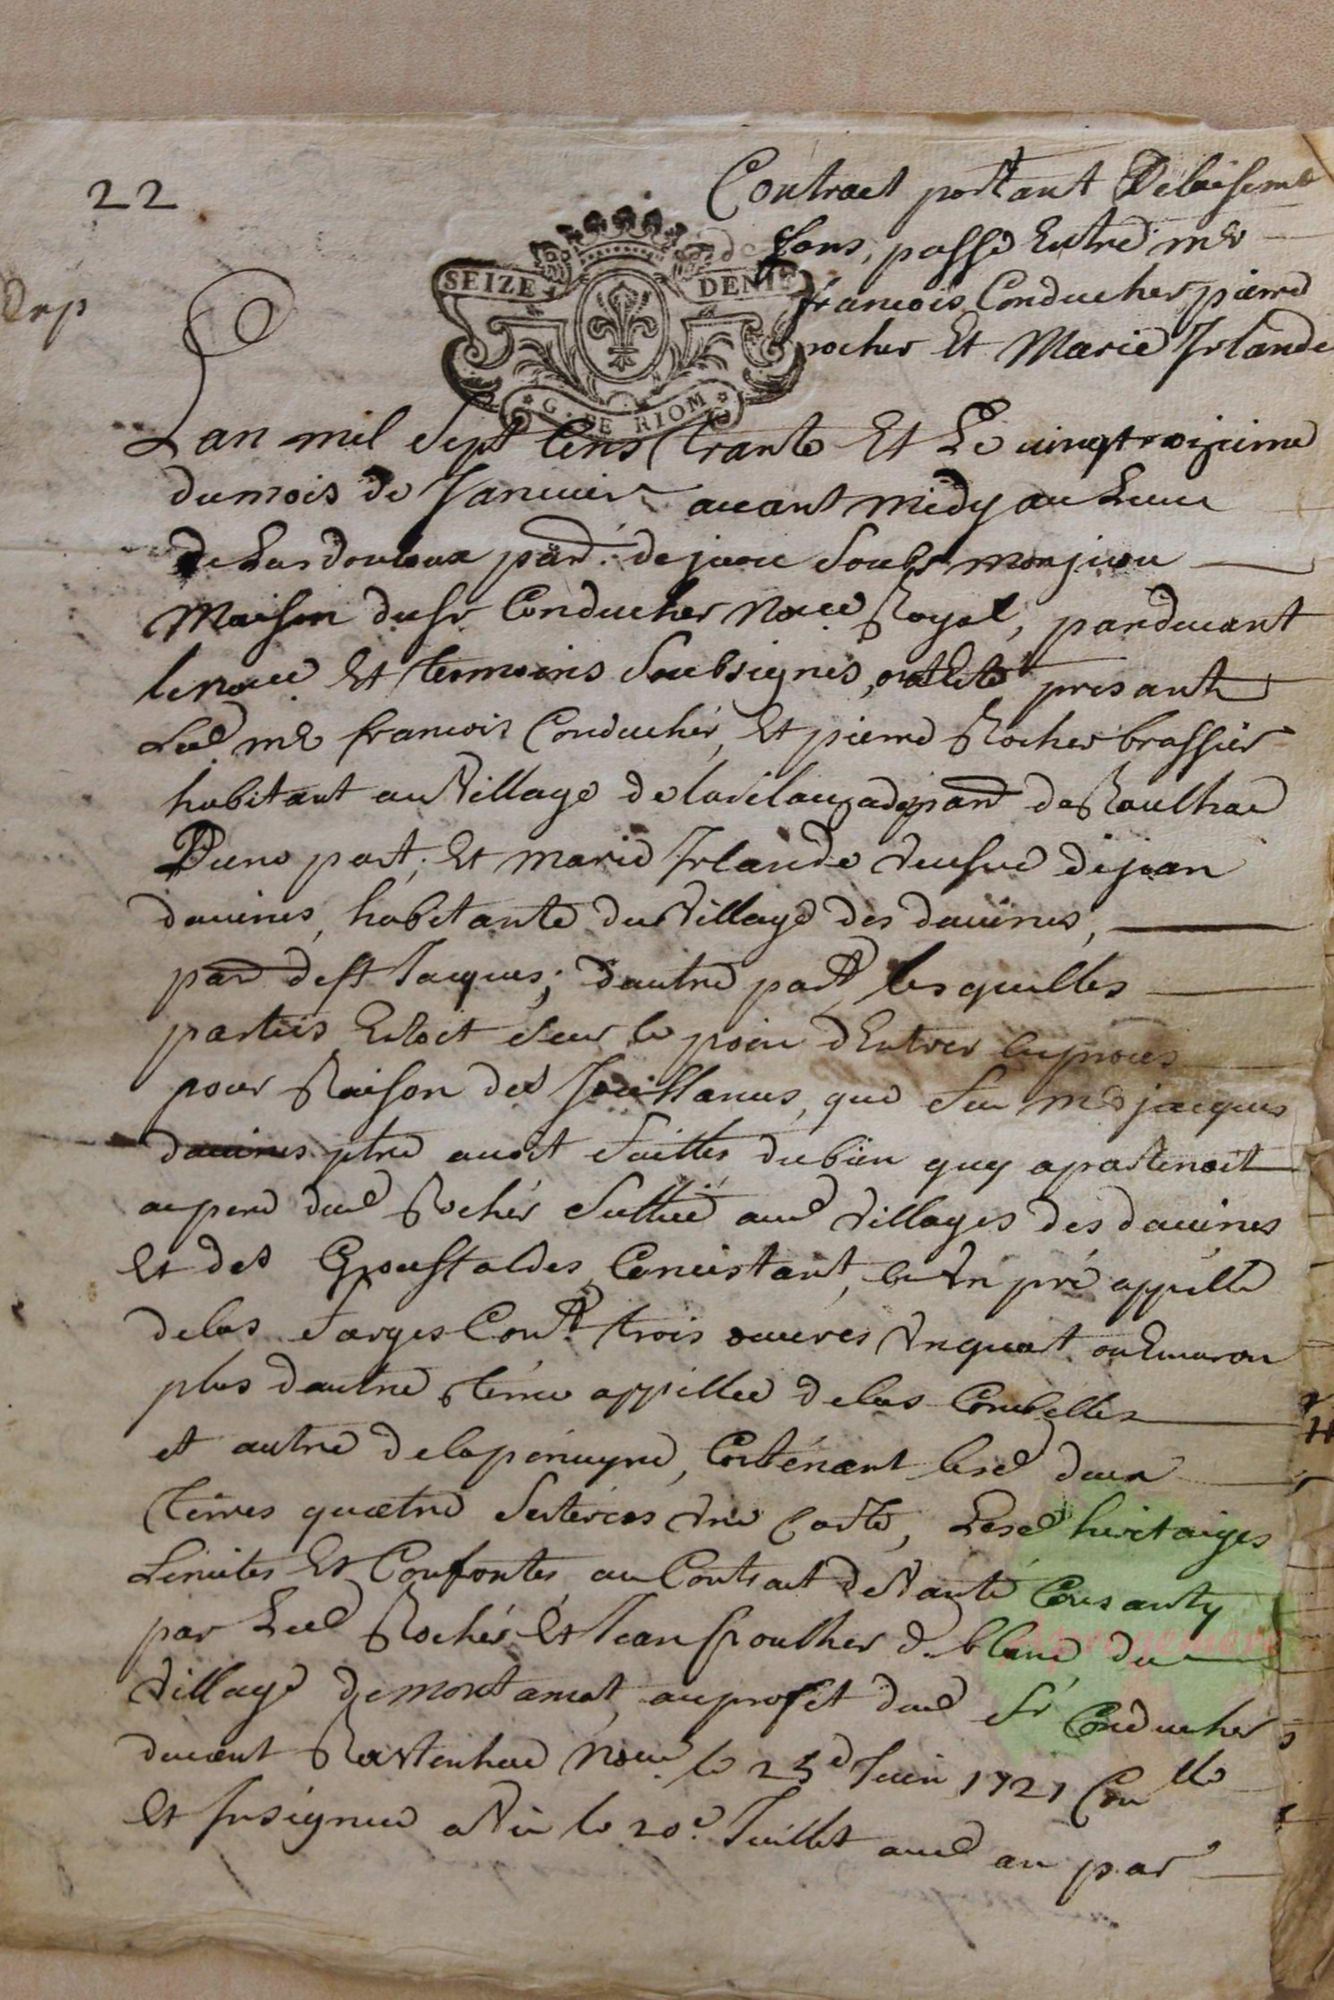 22
Contract portant Delaisemt
de fons, passé Entre me
francois Conducher pierre
rocher Et Marie Irlande
Exp
SEIZE DENIE
G. DE RIOM
Lan mil Sept Cens trante Et Le vingtroizieme
du mois de Januier auant midy au Lieu
de Lasdouleux parr. de juou Soubs monjuou
Maison du sr Conducher Nore Royal, pardeuant
le nore Et temoins Soubsignes, ont Esté presants
Led me francois Conducher, Et pierre Rocher brassier
habitant au Village de parr de Raulhac
D'une part, Et marie Irlande veufue de jean
dauines, habitante du Village des dauines,
parr de st Jacques; d'autre part, lesquelles
parties Estoit sur le poin d'Entrer en proces
pour Raison des Jouissances, que feu me jacques
dauines ptre auoit faittes du bien quy apartenoit
au pere dud Rocher Sittué aud Villages des dauines
Et des Groustaldes Concistant, en Vn pré appellé
de las farges Cont trois oeuures Vnquart ou Enuiron
plus d'autre terre appellee de las Combelles
et autre de la peruyre, Contenant lesd deux
terres quatre Seterées Vne Carte, Lesd heritaiges
Limites Et Confontés au Contract de Vante Consanty
par Led Rocher Et Jean froulher d. blanc du
Village de montamat, au profit dud Sr Conducher
deuant Rastinhac Nore le 25e Juin 1721 Conllé
Et Insignué a Vic le 20e. Juillet aud an par
Aprogemere